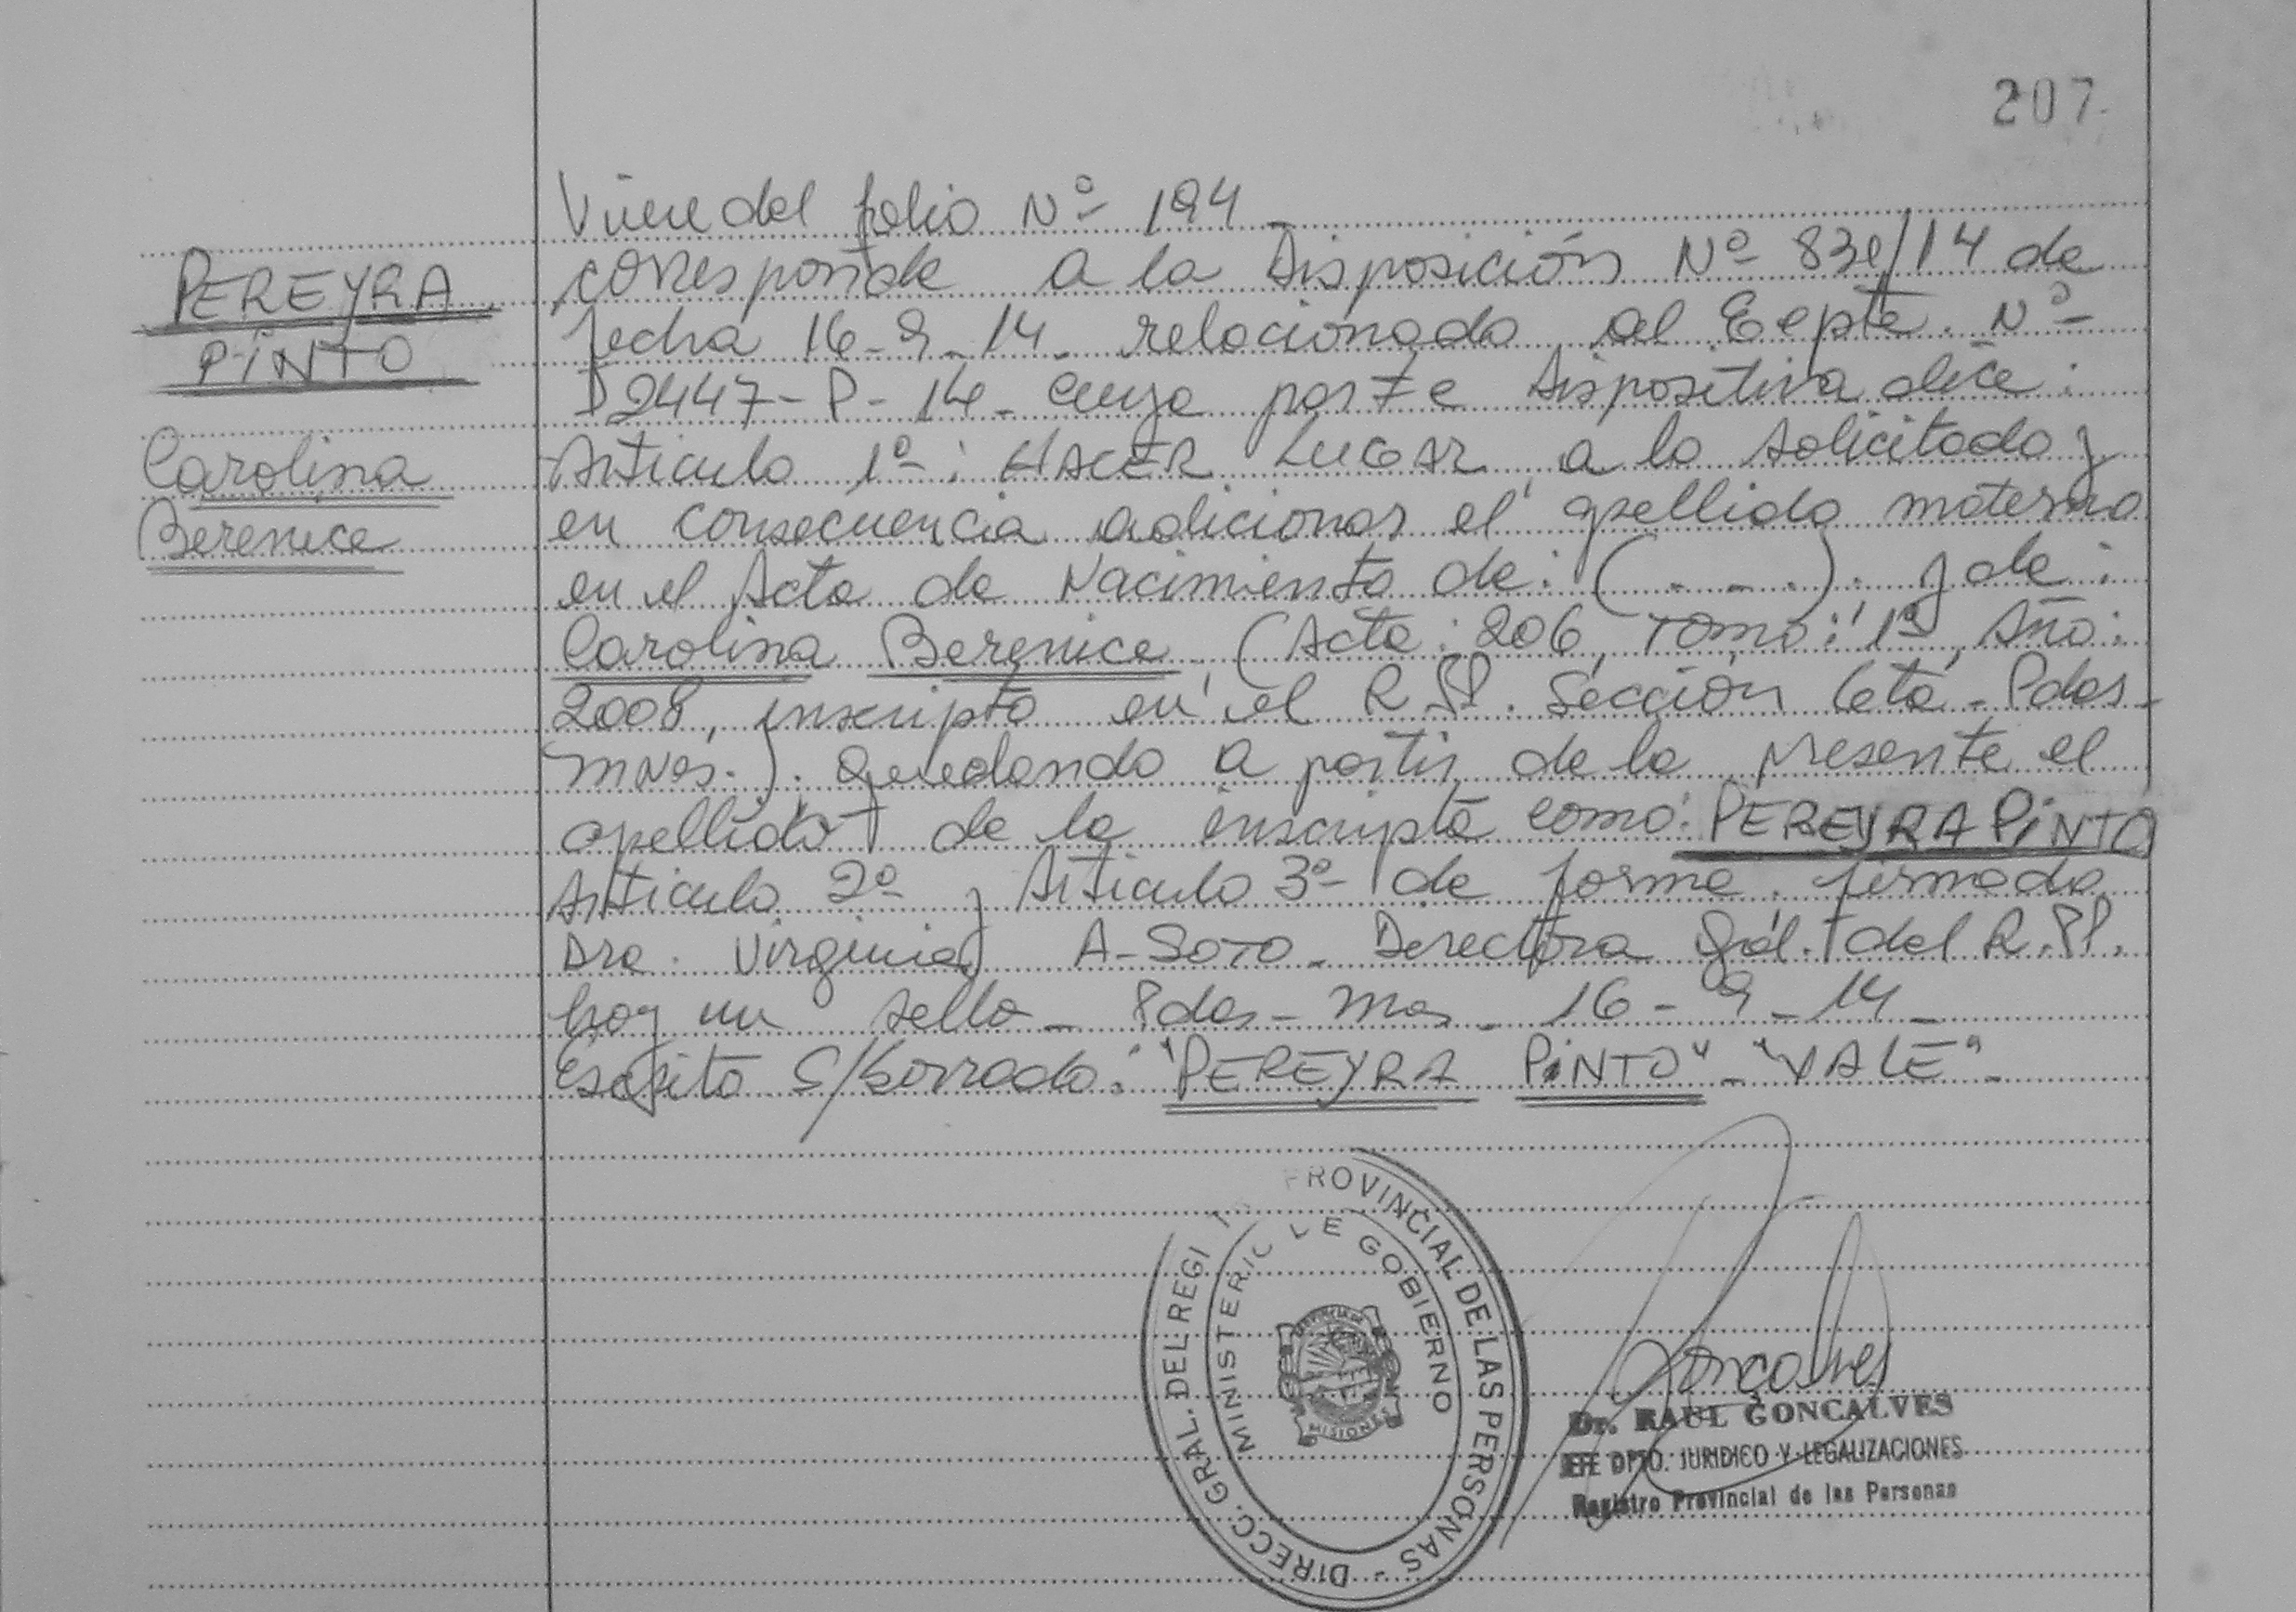 207
Viene del folio Nº 194
PEREYRA
PINTO
Carolina
Berenice
corresponde a la Disposición Nº /14 de
fecha 16-9-14. relacionado al Eepte. Nº
D2447-P-14. cuya parte dispositiva dice:
Artículo 1º: HACER LUGAR a lo solicitado y
en consecuencia adicionar el apellido materno
en el Acta de Nacimiento de: (. - - .). y de:
Carolina Berenice (Acta: 206, Tomo: 1º, Año:
2008, inscripta en el R.PP. Sección 6ta - Pdas-
Mnes.). quedando a partir de la presente el
apellido de la inscripta como: PEREYRA PINTO
Artículo 2º y Artículo 3º de forma. firmado
Dra. Virginia A-SOTO. Directora Gral. del R.PP.
hay un sello - Pdas - Mnes - 16-9-14-
Escrito S/Borrado: "PEREYRA PINTO" - "VALE" -
DIRECC. GRAL. DEL REGI PROVINCIAL DE LAS PERSONAS -
MINISTERIO DE GOBIERNO
MISIONES
Goncalves
Dr. RAUL GONCALVES
JEFE DPTO. JURIDICO Y LEGALIZACIONES
Registro Provincial de las Personas